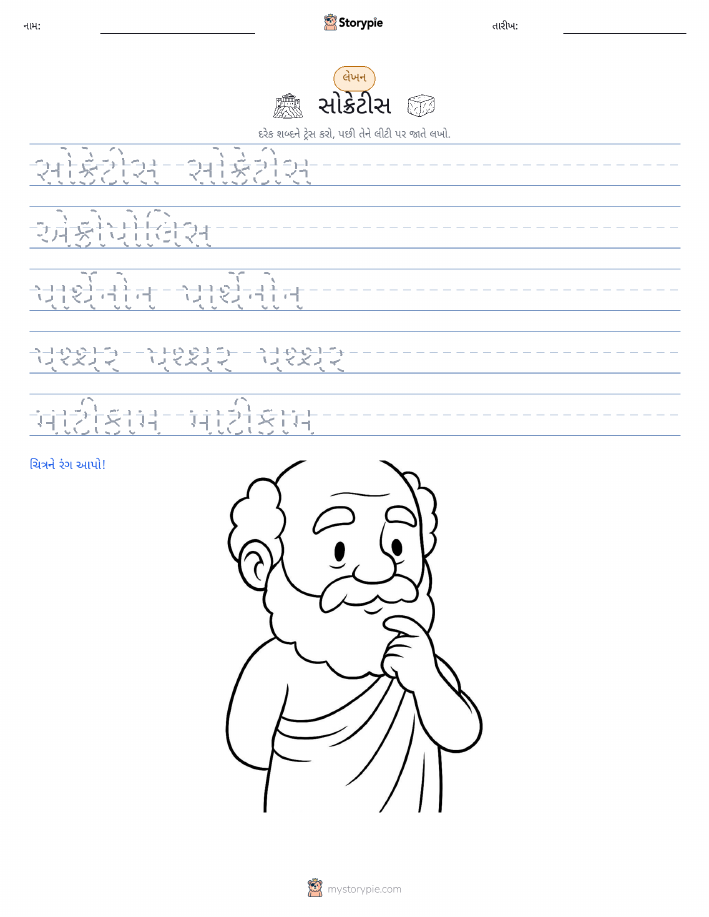 નામ:
Storypie
તારીખ:
લેખન
સોક્રેટીસ
દરેક શબ્દને ટ્રેસ કરો, પછી તેને લીટી પર જાતે લખો.
સોક્રેટીસ સોક્રેટીસ
એક્રોપોલિસ
પાર્થેનોન પાર્થેનોન
માટીકામ માટીકામ
ચિત્રને રંગ આપો!
mystorypie.com